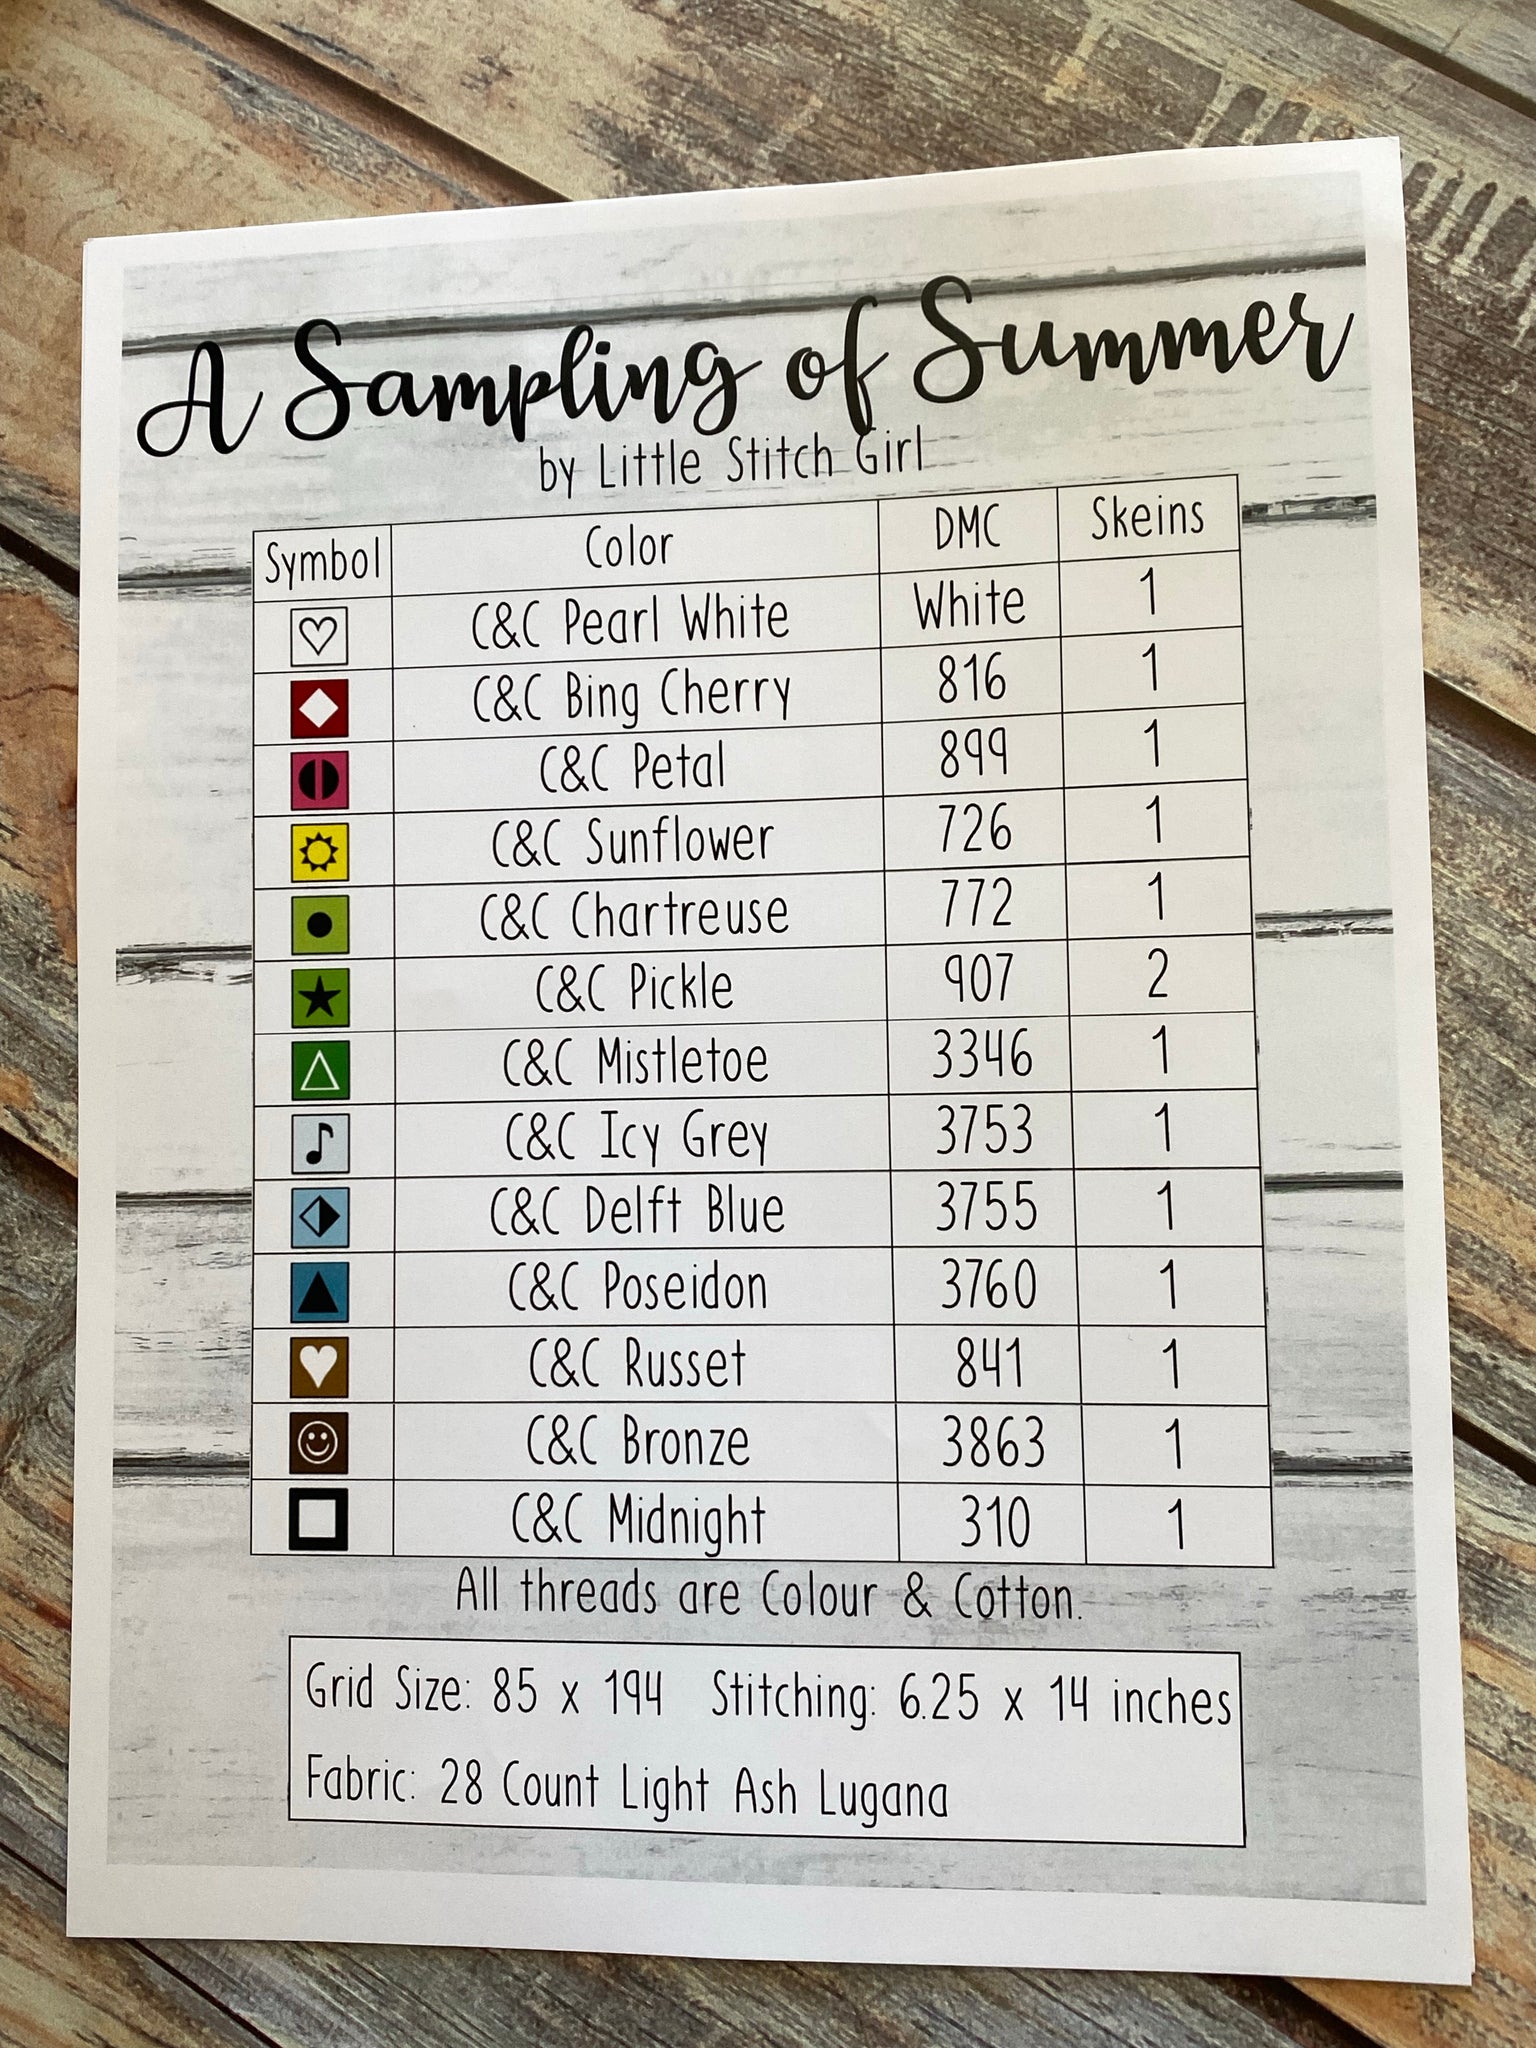 A Sampling of Summer
by Little Stitch Girl
Symbol Color DMC Skeins
C&C Pearl White White 1
C&C Bing Cherry 816 1
C&C Petal 899 1
C&C Sunflower 726 1
C&C Chartreuse 772 1
C&C Pickle 907 2
C&C Mistletoe 3346 1
C&C Icy Grey 3753 1
C&C Delft Blue 3755 1
C&C Poseidon 3760 1
C&C Russet 841 1
C&C Bronze 3863 1
C&C Midnight 310 1
All threads are Colour & Cotton.
Grid Size: 85 x 194 Stitching: 6.25 x 14 inches
Fabric: 28 Count Light Ash Lugana